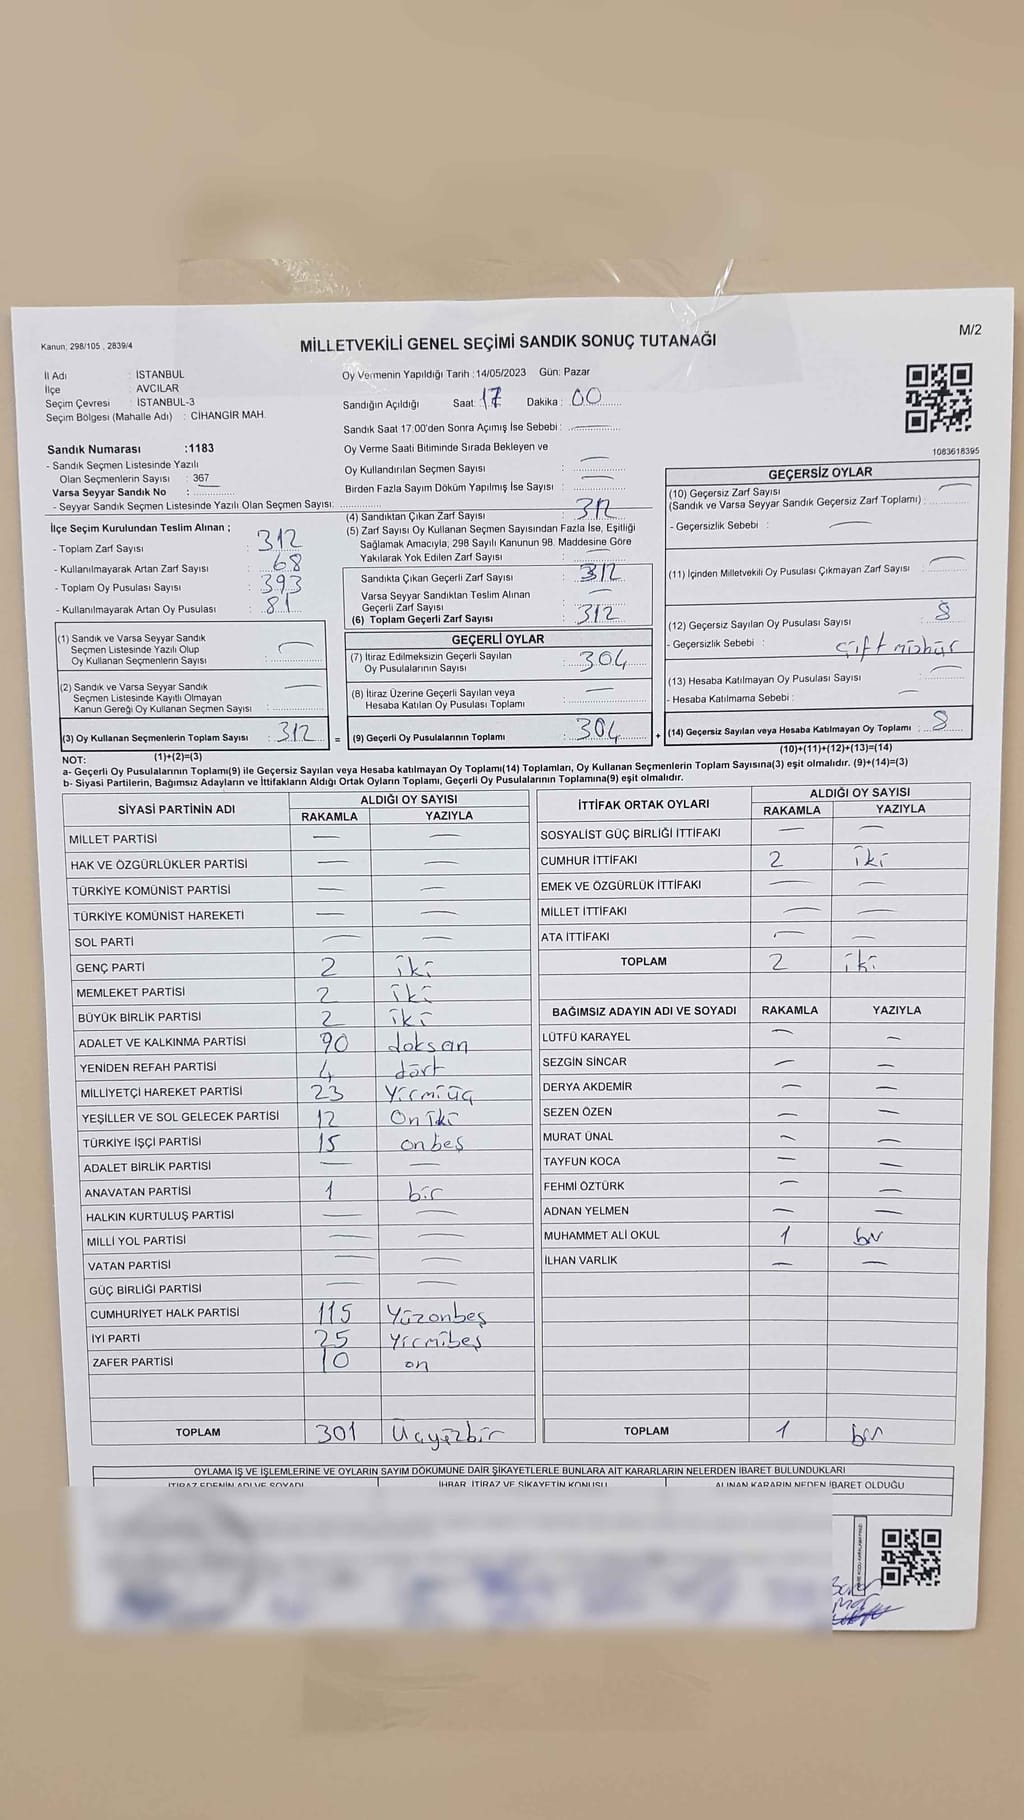 Kanun; 298/105 , 2839/4
MİLLETVEKİLİ GENEL SEÇİMİ SANDIK SONUÇ TUTANAĞI
M/2
İl Adı : İSTANBUL
İlçe : AVCILAR
Seçim Çevresi : İSTANBUL-3
Seçim Bölgesi (Mahalle Adı) : CİHANGİR MAH.
Oy Vermenin Yapıldığı Tarih :14/05/2023 Gün: Pazar
Sandığın Açıldığı Saat: 17 Dakika : 00
Sandık Saat 17:00'den Sonra Açımış İse Sebebi : —
Oy Verme Saati Bitiminde Sırada Bekleyen ve
Oy Kullandırılan Seçmen Sayısı : —
Birden Fazla Sayım Döküm Yapılmış İse Sayısı : —
1083618395
Sandık Numarası :1183
- Sandık Seçmen Listesinde Yazılı
Olan Seçmenlerin Sayısı : 367
Varsa Seyyar Sandık No :
- Seyyar Sandık Seçmen Listesinde Yazılı Olan Seçmen Sayısı:
İlçe Seçim Kurulundan Teslim Alınan ;
- Toplam Zarf Sayısı : 312
- Kullanılmayarak Artan Zarf Sayısı : 68
- Toplam Oy Pusulası Sayısı : 393
- Kullanılmayarak Artan Oy Pusulası : 81
(1) Sandık ve Varsa Seyyar Sandık
Seçmen Listesinde Yazılı Olup
Oy Kullanan Seçmenlerin Sayısı : —
(2) Sandık ve Varsa Seyyar Sandık
Seçmen Listesinde Kayıtlı Olmayan
Kanun Gereği Oy Kullanan Seçmen Sayısı : —
(3) Oy Kullanan Seçmenlerin Toplam Sayısı : 312 =
(1)+(2)=(3)
(4) Sandıktan Çıkan Zarf Sayısı : 312
(5) Zarf Sayısı Oy Kullanan Seçmen Sayısından Fazla İse, Eşitliği
Sağlamak Amacıyla, 298 Sayılı Kanunun 98. Maddesine Göre
Yakılarak Yok Edilen Zarf Sayısı : —
Sandıkta Çıkan Geçerli Zarf Sayısı : 312
Varsa Seyyar Sandıktan Teslim Alınan
Geçerli Zarf Sayısı : —
(6) Toplam Geçerli Zarf Sayısı : 312
GEÇERLİ OYLAR
(7) İtiraz Edilmeksizin Geçerli Sayılan
Oy Pusulalarının Sayısı : 304
(8) İtiraz Üzerine Geçerli Sayılan veya
Hesaba Katılan Oy Pusulası Toplamı : —
(9) Geçerli Oy Pusulalarının Toplamı : 304 +
GEÇERSİZ OYLAR
(10) Geçersiz Zarf Sayısı
(Sandık ve Varsa Seyyar Sandık Geçersiz Zarf Toplamı) : —
- Geçersizlik Sebebi : —
(11) İçinden Milletvekili Oy Pusulası Çıkmayan Zarf Sayısı : —
(12) Geçersiz Sayılan Oy Pusulası Sayısı : 8
- Geçersizlik Sebebi : çift mühür
(13) Hesaba Katılmayan Oy Pusulası Sayısı : —
- Hesaba Katılmama Sebebi : —
(14) Geçersiz Sayılan veya Hesaba Katılmayan Oy Toplamı : 8
(10)+(11)+(12)+(13)=(14)
NOT:
a- Geçerli Oy Pusulalarının Toplamı(9) ile Geçersiz Sayılan veya Hesaba katılmayan Oy Toplamı(14) Toplamları, Oy Kullanan Seçmenlerin Toplam Sayısına(3) eşit olmalıdır. (9)+(14)=(3)
b- Siyasi Partilerin, Bağımsız Adayların ve İttifakların Aldığı Ortak Oyların Toplamı, Geçerli Oy Pusulalarının Toplamına(9) eşit olmalıdır.
SİYASİ PARTİNİN ADI ALDIĞI OY SAYISI
RAKAMLA YAZIYLA
MİLLET PARTİSİ — —
HAK VE ÖZGÜRLÜKLER PARTİSİ — —
TÜRKİYE KOMÜNİST PARTİSİ — —
TÜRKİYE KOMÜNİST HAREKETİ — —
SOL PARTİ — —
GENÇ PARTİ 2 iki
MEMLEKET PARTİSİ 2 iki
BÜYÜK BİRLİK PARTİSİ 2 iki
ADALET VE KALKINMA PARTİSİ 90 doksan
YENİDEN REFAH PARTİSİ 4 dört
MİLLİYETÇİ HAREKET PARTİSİ 23 Yirmiüç
YEŞİLLER VE SOL GELECEK PARTİSİ 12 On iki
TÜRKİYE İŞÇİ PARTİSİ 15 onbeş
ADALET BİRLİK PARTİSİ — —
ANAVATAN PARTİSİ 1 bir
HALKIN KURTULUŞ PARTİSİ — —
MİLLİ YOL PARTİSİ — —
VATAN PARTİSİ — —
GÜÇ BİRLİĞİ PARTİSİ — —
CUMHURİYET HALK PARTİSİ 115 Yüzonbeş
İYİ PARTİ 25 Yirmibeş
ZAFER PARTİSİ 10 on
TOPLAM 301 Üçyüzbir
İTTİFAK ORTAK OYLARI ALDIĞI OY SAYISI
RAKAMLA YAZIYLA
SOSYALİST GÜÇ BİRLİĞİ İTTİFAKI — —
CUMHUR İTTİFAKI 2 iki
EMEK VE ÖZGÜRLÜK İTTİFAKI — —
MİLLET İTTİFAKI — —
ATA İTTİFAKI — —
TOPLAM 2 iki
BAĞIMSIZ ADAYIN ADI VE SOYADI RAKAMLA YAZIYLA
LÜTFÜ KARAYEL — —
SEZGİN SİNCAR — —
DERYA AKDEMİR — —
SEZEN ÖZEN — —
MURAT ÜNAL — —
TAYFUN KOCA — —
FEHMİ ÖZTÜRK — —
ADNAN YELMEN — —
MUHAMMET ALİ OKUL 1 bir
İLHAN VARLIK — —
TOPLAM 1 bir
OYLAMA İŞ VE İŞLEMLERİNE VE OYLARIN SAYIM DÖKÜMÜNE DAİR ŞİKAYETLERLE BUNLARA AİT KARARLARIN NELERDEN İBARET BULUNDUKLARI
İTİRAZ EDENİN ADI VE SOYADI İHBAR, İTİRAZ VE ŞİKAYETİN KONUSU ALINAN KARARIN NEDEN İBARET OLDUĞU